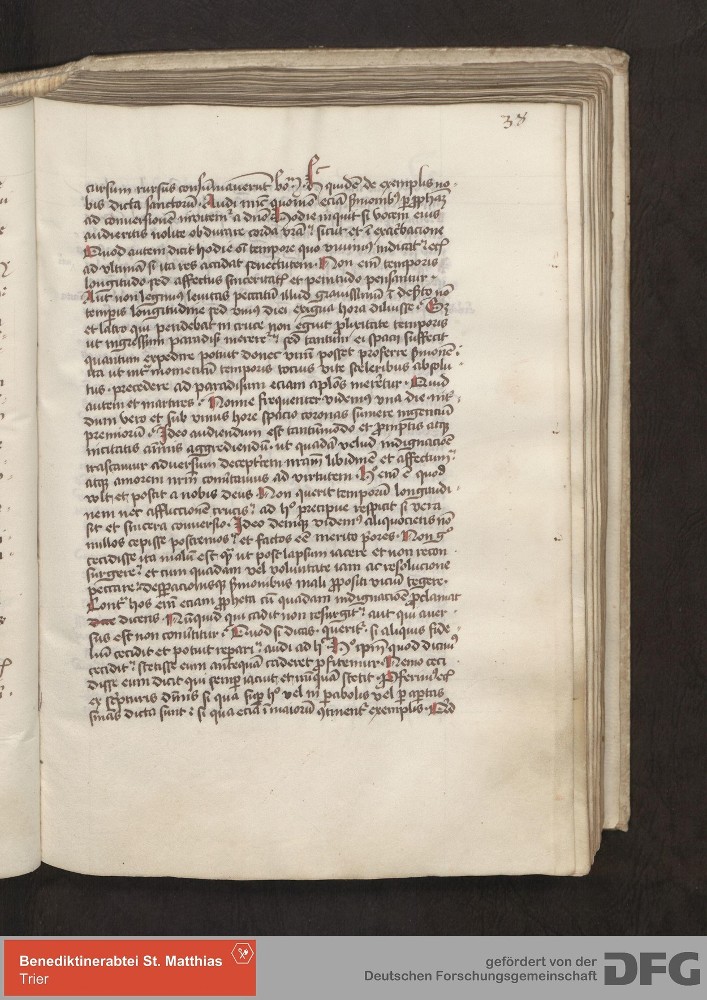 38
cursum rursus consūmaverūt bo᷒ꝝ · Hec quidē de exemplis no-
bis dicta sanctorū · Audi nūc quomō eciā ẜmonibꝰ ꝓphaꝝ
ad conversionē invitemꝛ a dn̄o Hodie inquit si vocem eius
audieritis nolite obdurare corda vr̄a sicut et ī exac̄bacione
Quod autem dicit hodie oī tempore quo vivimꝰ indicat
ad ultimā si ita res accidat senectutem · Non em̄ temporis
longitudo sed affectus sinceritatꝭ et penitudo pensantur ·
Aut non legimꝰ levitas peccatū illud gravissimū ī deẜto nō
tempis longitudine sed unius diei exigua hora diluisse ·
et latro qui pendebat in cruce non eguit pluritate temporis
ut ingressum paradisi merereꝛ sed tantum ei spacii suffecit
quantum expedire potuit donec unū posset proferre ẜmonē
ita ut int̄ momentum temporis tocius vite sceleribus absolu-
tus · precedere ad paradisum eciam aplōs meretur · Quid
autem et martires · Nonne frequenter videmus una die int̄
dum vero et sub unius hore spacio coronas sumere ingenciū
premiorū · Ideo audiendum est tantūmodo et promptis atqꝫ
incitatis aīmis aggrediendū · ut quadā velud indignacōe
irascamur adversum deceptricem nr̄am libidinē et affectum
atqꝫ amorem nr̄m cōmutamus ad virtutem · Hoc em̄ ē quod
vult et poscit a nobis deus · Non querit temporū longitudi-
nem nec affluccionē crucis ad hoc precipue respicit si vera
sit et sincera conversio · Ideo deniqꝫ videmꝰ aliquociens nō
nullos cepisse postremos et factos eē merito pores · Non gͦ
cecidisse ita malū est qm̄ ut post lapsum iacere et non recon-
surgere et cum quadam vel voluntate iam ac resolucione
peccare desperacionisqꝫ ẜmonibus mali proposita viciū tegere ·
Contra hos em̄ eciam propheta cū quadam indignacōe proclamat
dicens · Nūquid qui cadit non resurgit aut qui aver-
sus est non convertitur · Quod si dicas · querit · si aliquis fide-
lium cecidit et potuit reperari · audi ad h̄ · Hoc ipm̄ quod dicimꝰ
cecidit stetisse eum antequā caderet profitemur · Nemo ceci-
disse eum dicit qui semper iacuit et nūquā stetit · Proferimus
ex scripturis diuīs si qua super hoc vel in parabolis vel per apertas
snīas dicta sunt si qua eciā ī maiorū continentꝛ exemplis · Quid
Benediktinerabtei St. Matthias
Trier
gefördert von der
Deutschen Forschungsgemeinschaft
DFG